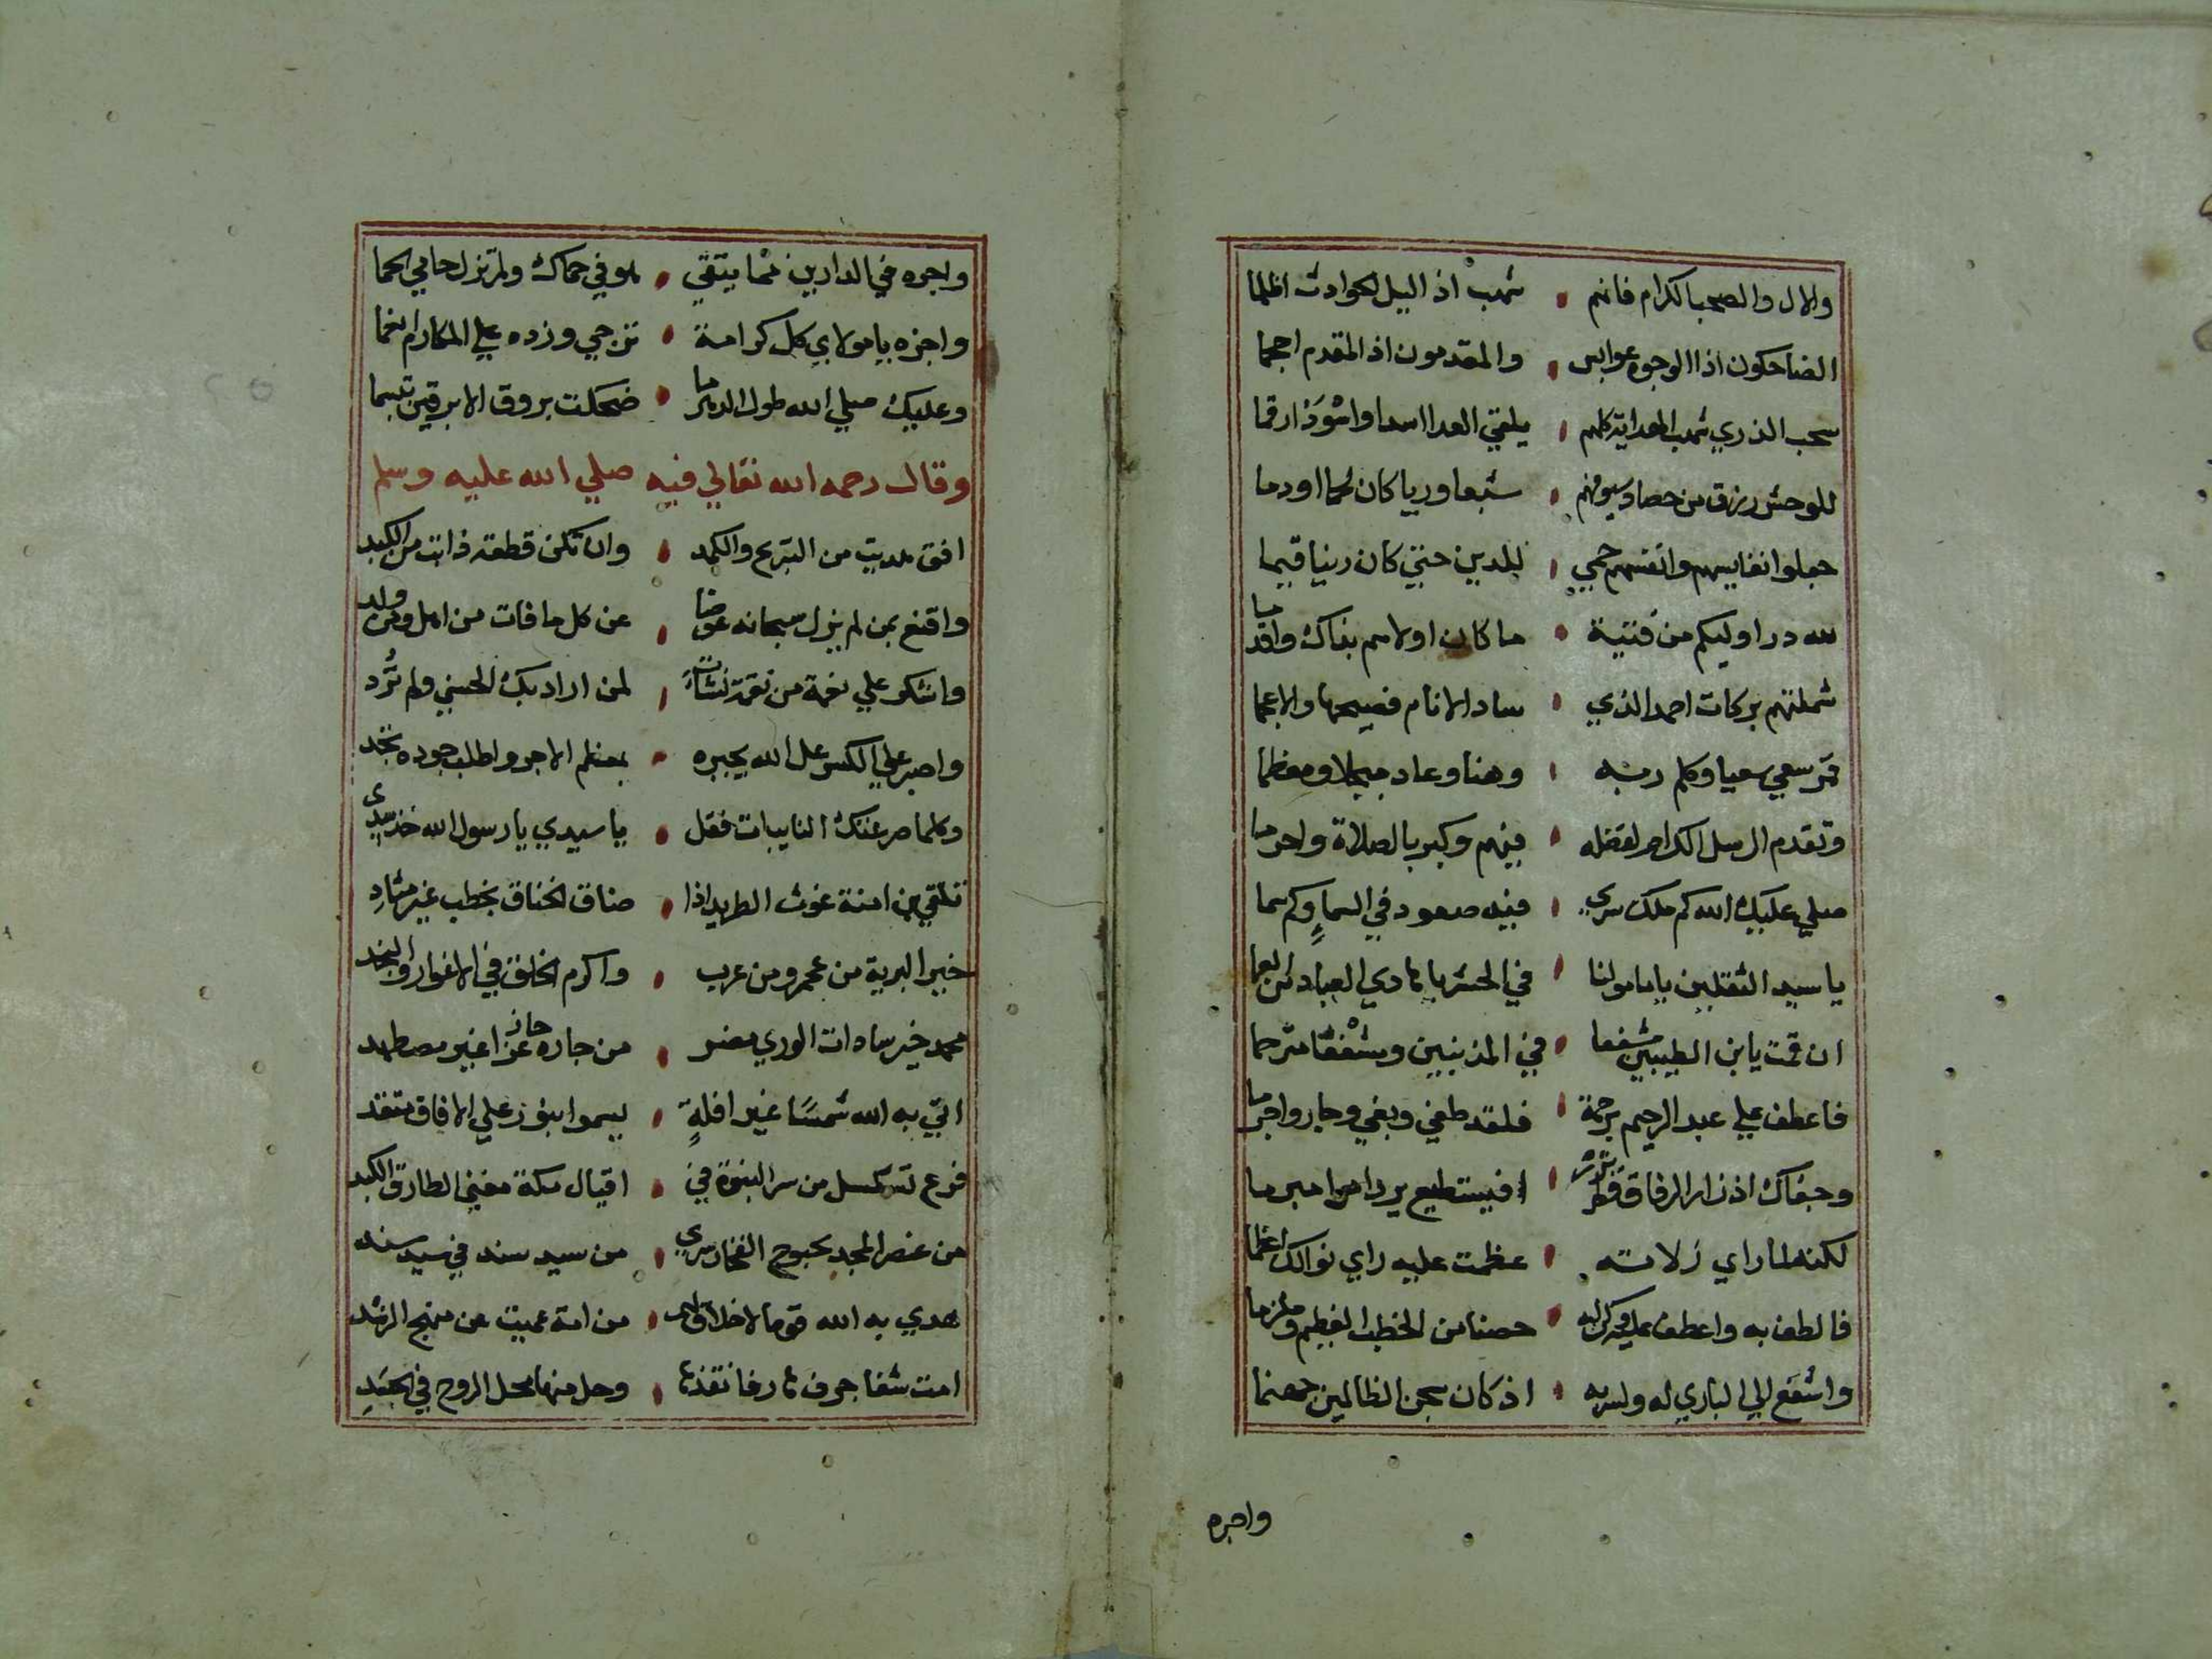 والال والصحب الكرام فانهم شهب اذ اليل الحوادث اظلما
الضاحكون اذا الوجوه عوابس والمقدمون اذ المقدم احجما
سحب الذري شهب الهداية كلهم يلقي العدا اسدا واسود ارقما
للوحش رزق من حصاد سيوفهم شبعا وريا كان لحما او دما
جعلوا نفايسهم وانفسهم حمي للدين حتي كان دينا قيما
لله در اوليكم من فتية ما كان اولاهم بذاك واقدما
شملتهم بركات احمد الذي ساد الانام فصيحها والاعجما
قمر سعي سعيا وكلم ربه وهنا وعاد مبجلا ومعظما
وتقدم الرسل الكرام لفضله فيهم وكبر بالصلاة واحرما
صلي عليك الله كم ملك سري فيه صعود في السماء وكم سما
يا سيد الثقلين يا مامولنا في الحشر يا هادي العباد من العما
ان قمت يابن الطيبين مشفعا في المذنبين ومشفقا مترحما
فاعطف علي عبد الرحيم برحمة فلقد طغي وبغي وجار واجرما
وجفاك اذ زار الرفاق افيستطيع يرد امرا مبرما
لكنه لما راي زلاته عظمت عليه راي نوالك اعظما
فالطف به واعطف عليه وكن له حصنا من الخطب العظيم وملزما
واشفع الي الباري له ولسربه اذ كان سجن الظالمين جهنما
واجره
واجره في الدارين مما يتقي هو في حماك ولم تزل حامي الحما
واجزه يا مولاي كل كرامة ترجي وزده علي المكارم انعما
وعليك صلي الله طول الدهر ما ضحكت بروق الابرقين تبسما
وقال رحمه الله تعالي فيه صلي الله عليه وسلم
افق هديت من التبريح والكمد وان تكن قطعة ذابت من الكبد
واقنع بمن لم يزل سبحانه عوضا عن كل ما فات من اهل ومن ولد
واشكر علي نعمة من نقمة نشات لمن اراد بك الحسني ولم ترد
واصبر علي الكسر عل الله يجبره بعظم الاجر واطلب جوده تجد
وكلما صرعتك النايبات فقل يا سيدي يا رسول الله خذ بيدي
تلقي بن امنة غوث الطريد اذا ضاق الخناق بخطب غير متاد
خير البرية من عجم ومن عرب واكرم الخلق في الاغوار والنجد
محمد خير سادات الوري مضر من جاره حاز عزا غير مضطهد
اتي به الله شمسا غير افلة يسموا بنور علي الافاق متقد
فرع تسلسل من سر النبوة في اقيال مكة مغني الطارق الكبد
من عنصر المجد بحبوح الفخار سري من سيد سند في سيد سند
هدي به الله قوما لا خلاق لهم من امة عميت عن منهج الرشد
امت شفا جرف هار فانقذها وحل منها محل الروح في الجسد